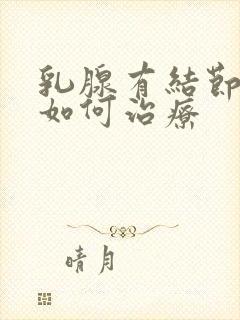 乳腺有結節
如何治療
晴月